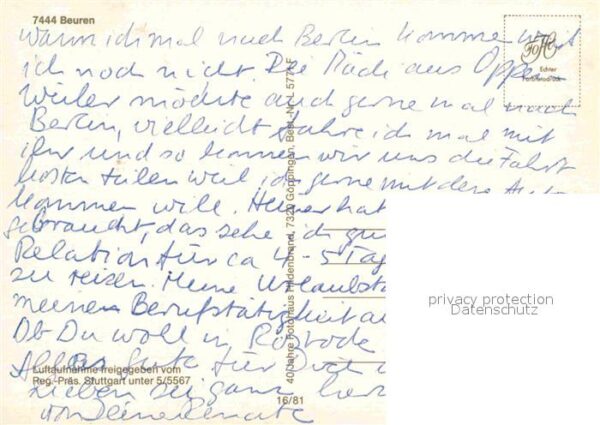 7444 Beuren
wann ich mal nach Berlin komme weiß
ich noch nicht. Die Mädi aus Oppen
weiler möchte auch gerne mal nach
Berlin, vielleicht fahre ich mal mit
ihr und so können wir uns die Fahrt
kosten teilen weil ich gerne mit dem Auto
kommen will. Heiner hat
gebraucht, das sehe ich
Relation für ca 4-5 Tag
zu reisen. Meine Urlaubsta
meinen Berufstätigkeit
Ob Du wohl in Roßrode
Alles Gute für Dich
Lieben sei ganz herz
von Deine Renate
Echter
Fotodruck
Luftaufnahme freigegeben vom
Reg.-Präs. Stuttgart unter 5/5567
40 Jahre Fotohaus Hildenbrand, 7320 Göppingen, Best.-Nr. L 5771 F
16/81
privacy protection
Datenschutz